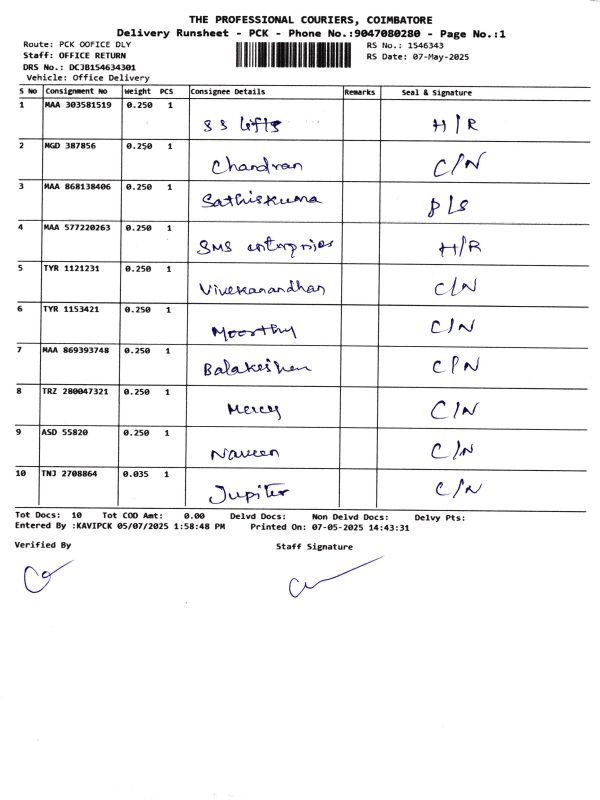 THE PROFESSIONAL COURIERS, COIMBATORE
Delivery Runsheet - PCK - Phone No.:9047080280 - Page No.:1
Route: PCK OOFICE DLY
RS No.: 1546343
Staff: OFFICE RETURN
RS Date: 07-May-2025
DRS No.: DCJB154634301
Vehicle: Office Delivery
S No Consignment No Weight PCS Consignee Details Remarks Seal & Signature
1 MAA 303581519 0.250 1 SS lifts H/R
2 MGD 387856 0.250 1 Chandran C/N
3 MAA 868138406 0.250 1 Sathiskuma P/S
4 MAA 577220263 0.250 1 SMS enterprises H/R
5 TYR 1121231 0.250 1 Vivekanandhan C/N
6 TYR 1153421 0.250 1 Moorthy C/N
7 MAA 869393748 0.250 1 C/N
8 TRZ 280047321 0.250 1 Mercy C/N
9 ASD 55820 0.250 1 Naveen C/N
10 TNJ 2708864 0.035 1 Jupiter C/N
Tot Docs: 10 Tot COD Amt: 0.00 Delvd Docs: Non Delvd Docs: Delvy Pts:
Entered By :KAVIPCK 05/07/2025 1:58:48 PM Printed On: 07-05-2025 14:43:31
Verified By Staff Signature